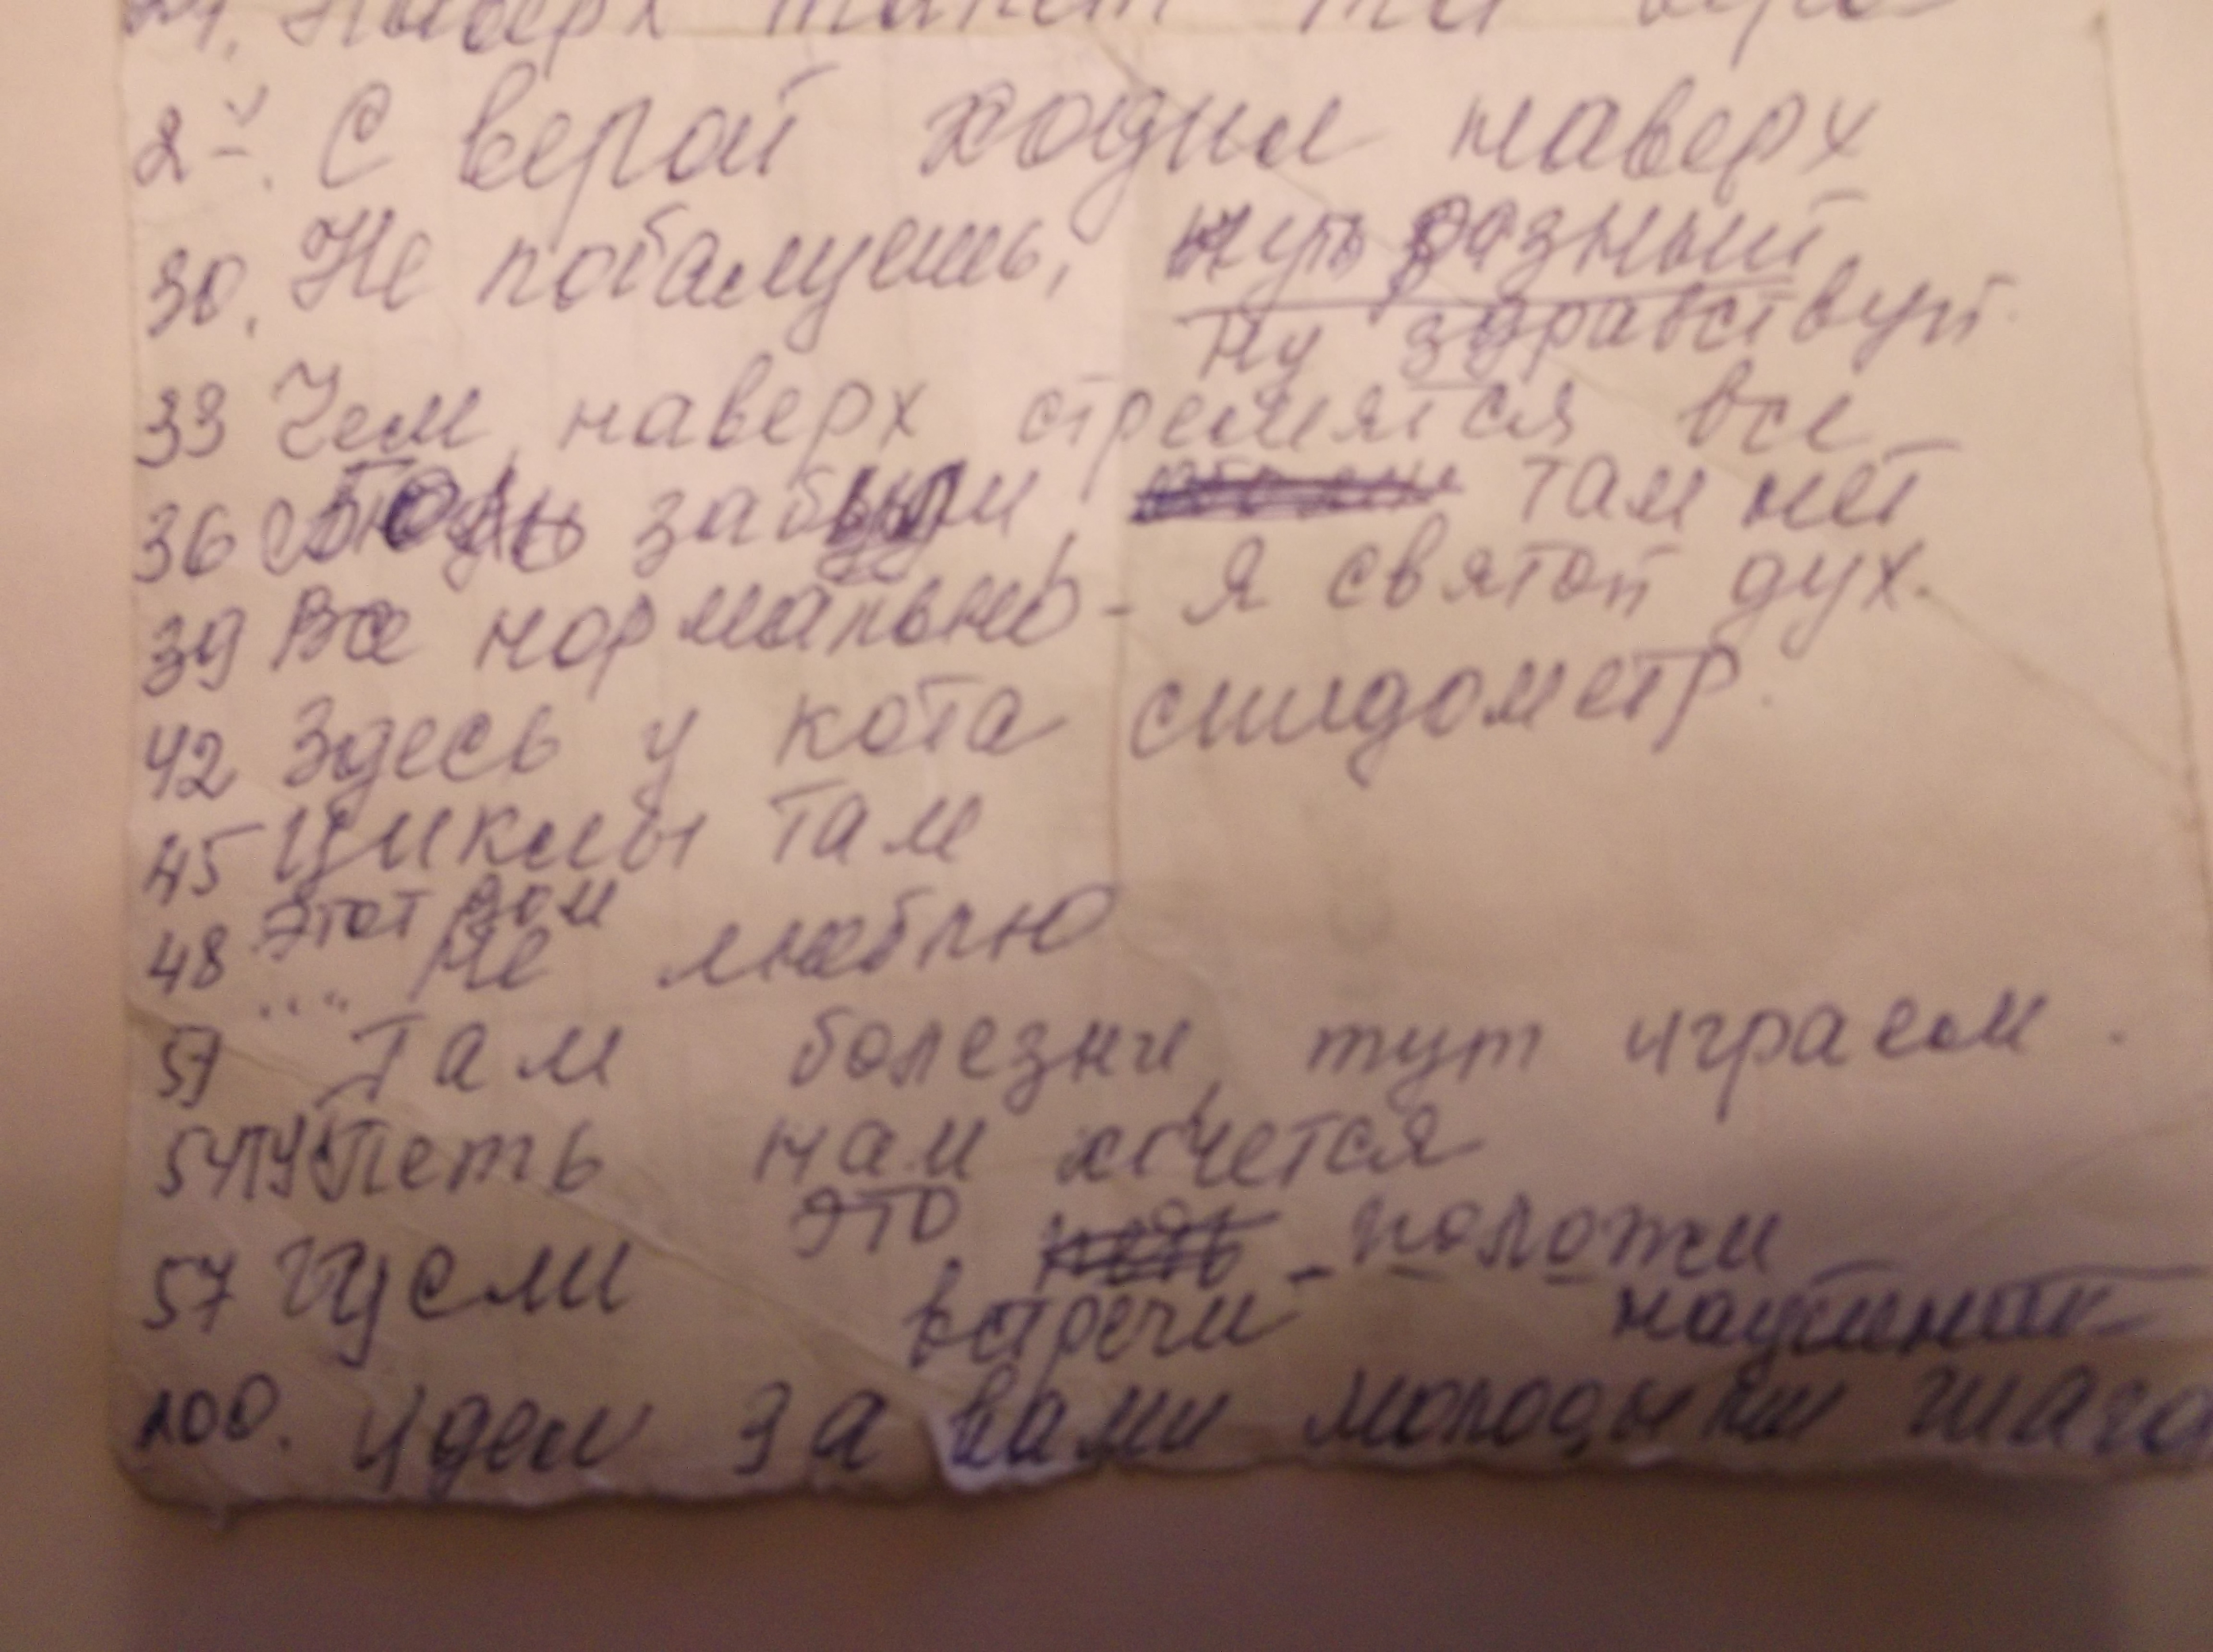 Наверх
2 С верой ходил наверх
30. Не побалуешь, путь разный
ну здравствуй.
33 Чем наверх стремятся все
36 забыли там нет
39 Все нормально - я святой дух.
42 Здесь у кота спидометр.
45 Циклы там
Этот дом
48 .... Не люблю
51 Там болезни, тут играем.
54 Петь нам хочется
57 Гусели это - положи
встречи
100. Идем за вами молодыми шага